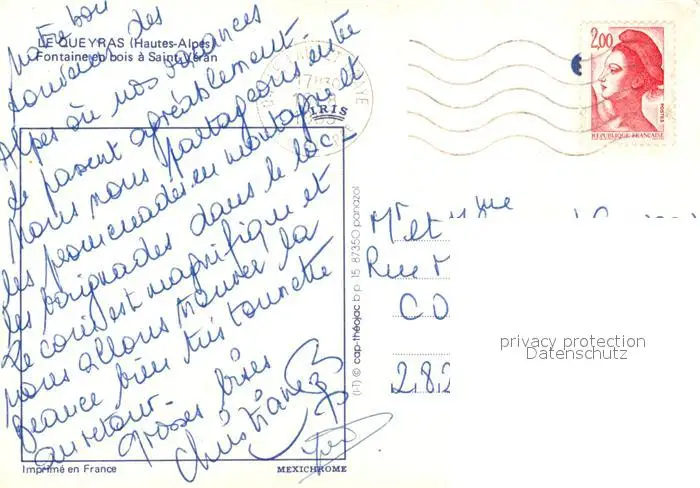 LE QUEYRAS (Hautes-Alpes)
Fontaine en bois à Saint Véran
Notre bon
souvenir des
Alpes où nos vacances
se passent agréablement.
Nous nous partageons entre
les promenades en montagne et
les baignades dans le lac
Le coin est magnifique et
nous allons trouver la
Beauce bien tristounette
au retour.
Grosses bises
Christiane
PARIS
2,00
POSTES
REPUBLIQUE FRANÇAISE
Mr et Mme
Rue
CO
282
(I-T) © cap-théojac b.p. 15 87350 panazol
privacy protection
Datenschutz
Imprimé en France
MEXICHROME